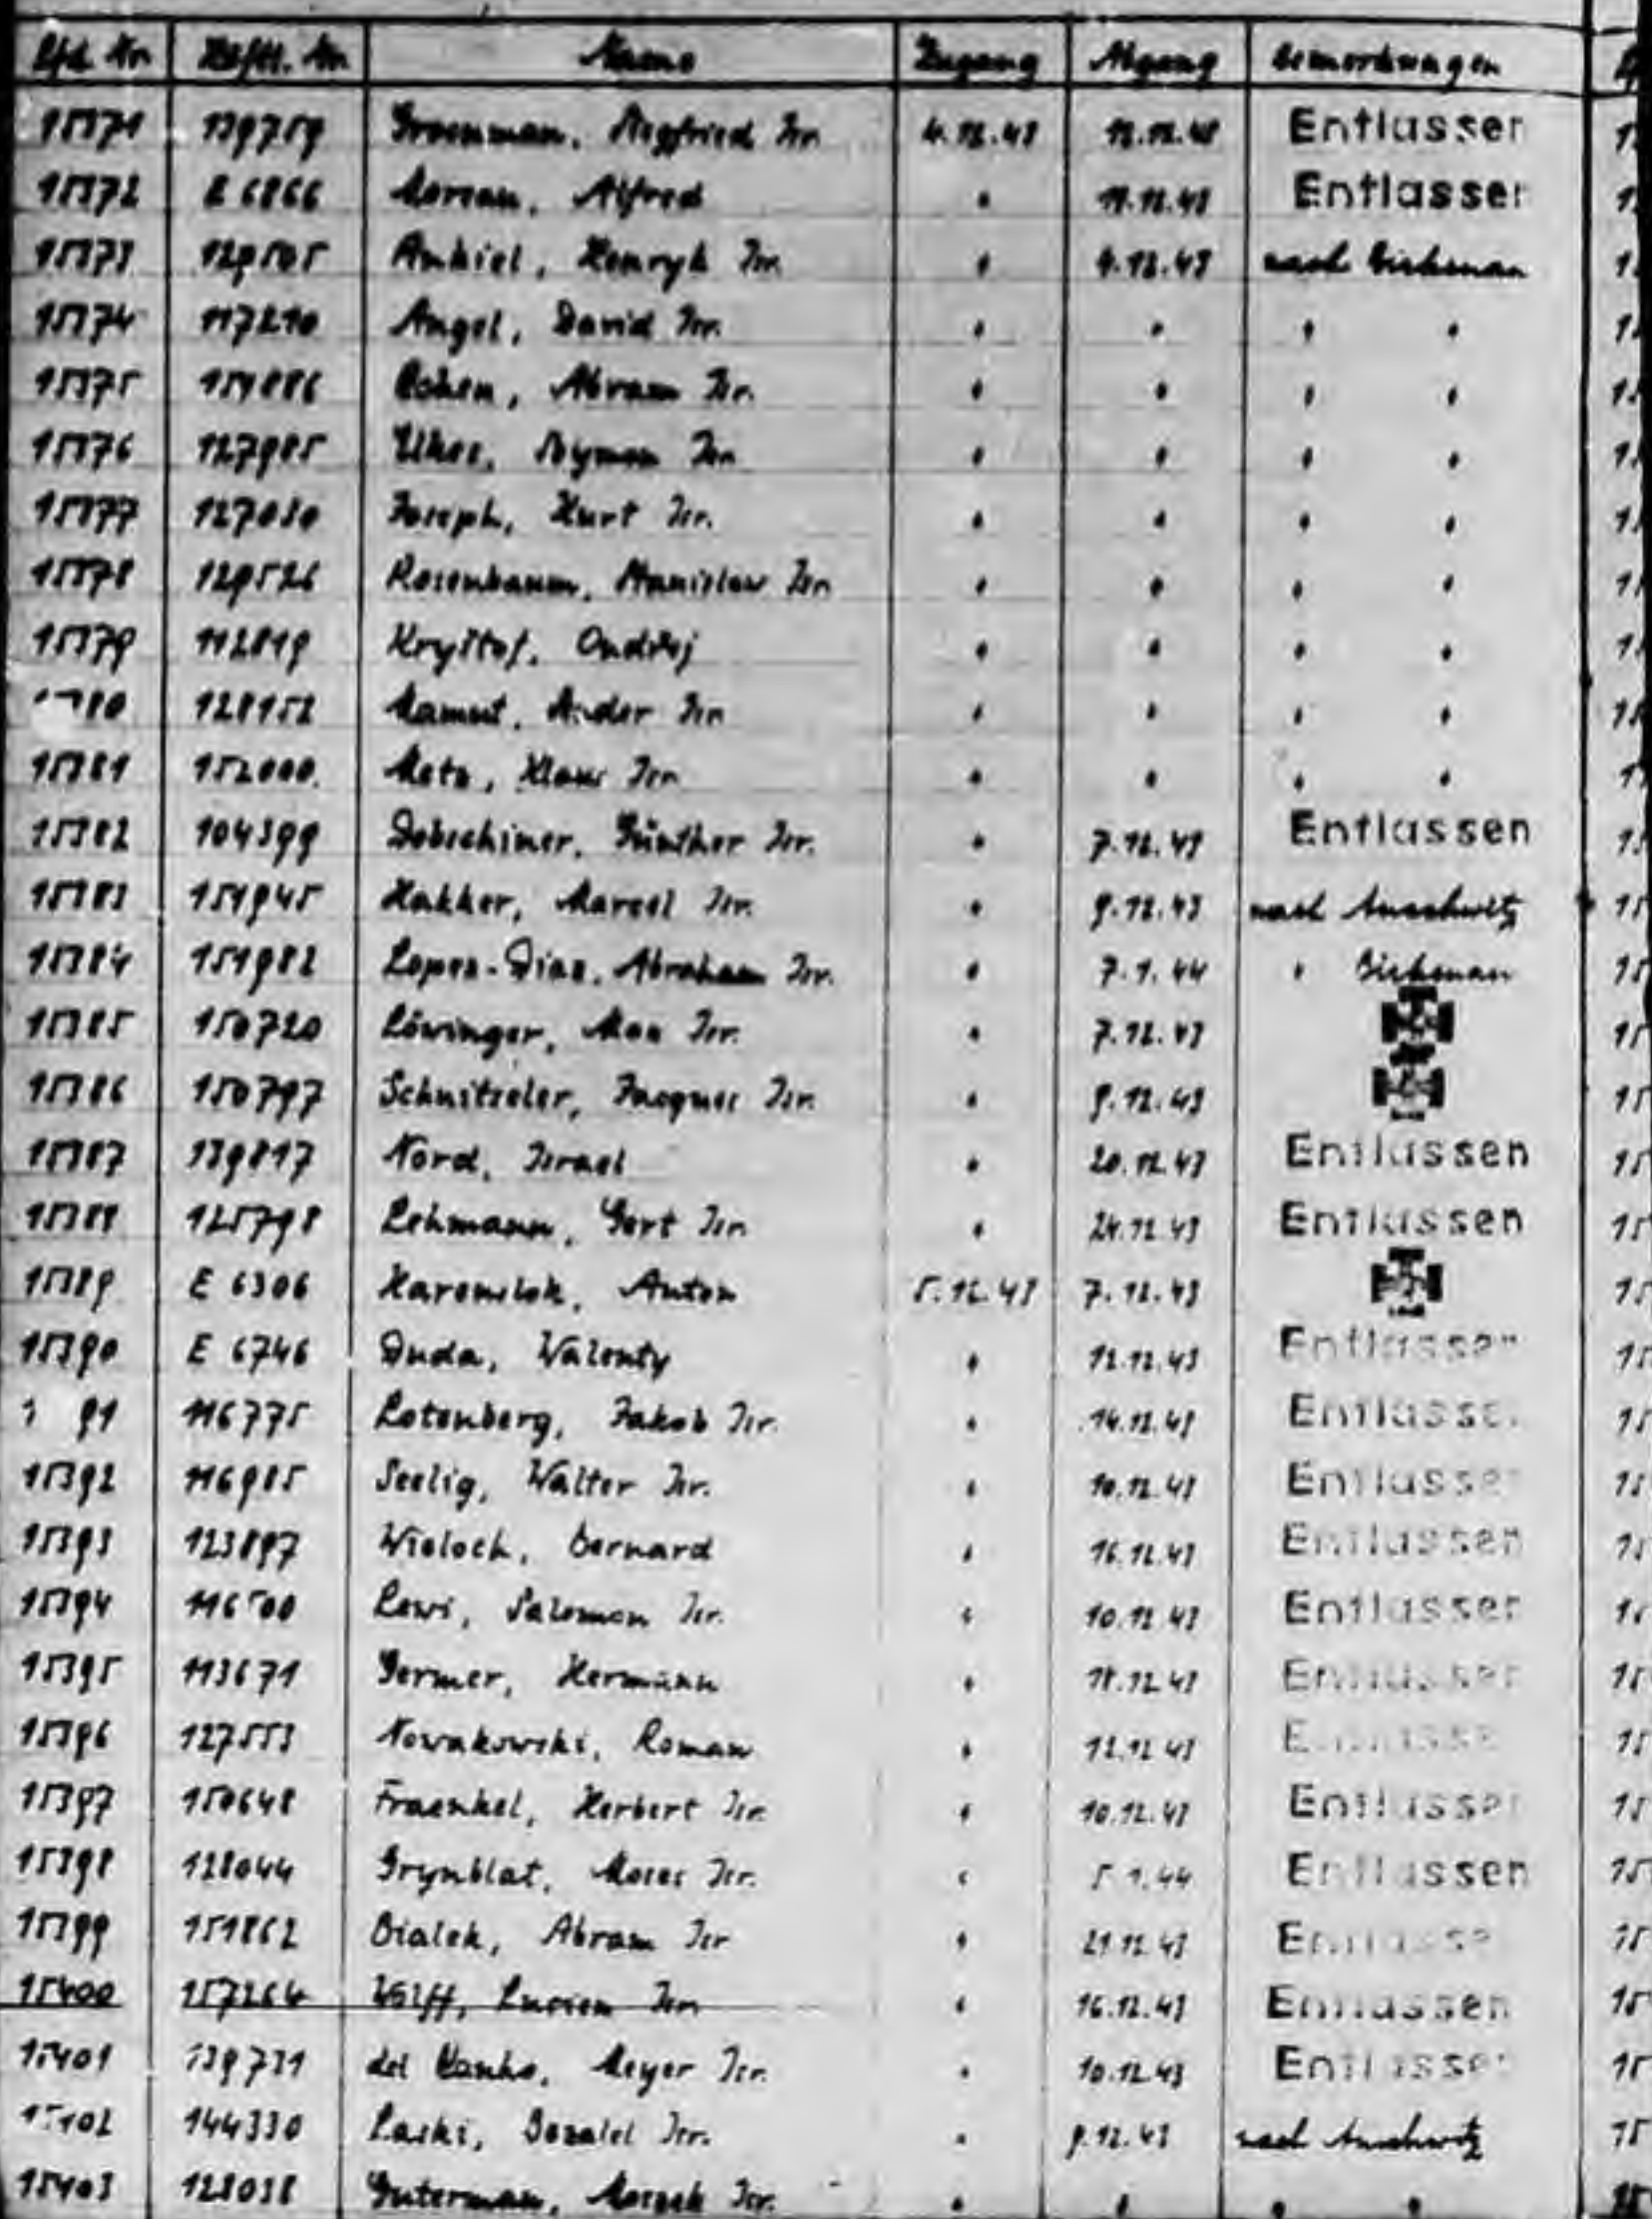 Lfd. Nr. Häftl. Nr. Name Zugang Abgang Bemerkungen
15371 139759 Groenman, Siegfried Isr. 4.12.43 12.12.43 Entlassen
15372 E 6866 Alfred " 11.12.43 Entlassen
15373 129505 Ankiel, Henryk Isr. " 4.12.43 nach Birkenau
15374 117210 Angel, David Isr. " " " "
15375 151886 Cohen, Abram Isr. " " " "
15376 127985 Elkes, Szymon Isr. " " " "
15377 127030 Joseph, Kurt Isr. " " " "
15378 129526 Rosenbaum, Stanislaw Isr. " " " "
15379 112819 Kryštof, Ondřej " " " "
380 128152 Mamut, Isr. " " " "
15381 152000. Metz, Klaus Isr. " " " "
15382 104399 Dobschiner, Günther Isr. " 7.12.43 Entlassen
15383 151945 Hakker, Marcel Isr. " 9.12.43 nach Auschwitz
15384 151982 Lopes-Dias, Abraham Isr. " 7.1.44 " Birkenau
15385 150720 Löwinger, Max Isr. " 7.12.43
15386 150797 Schnitzeler, Jacques Isr. " 9.12.43
15387 139817 Nord, Israel " 20.12.43 Entlassen
15388 125798 Lehmann, Gert Isr. " 24.12.43 Entlassen
15389 E 6306 Anton 5.12.43 7.12.43
15390 E 6746 Duda, Walenty " 12.12.43 Entlassen
91 116775 Rotenberg, Jakob Isr. " 14.12.43 Entlassen
15392 116985 Seelig, Walter Isr. " 10.12.43 Entlassen
15393 123897 Wieloch, Bernard " 16.12.43 Entlassen
15394 116500 Lewi, Salomon Isr. " 10.12.43 Entlassen
15395 113671 Germer, Hermann " 18.12.43 Entlassen
15396 127553 Nowakowski, Roman " 12.12.43 Entlassen
15397 150648 Fraenkel, Herbert Isr. " 10.12.43 Entlassen
15398 128044 Grynblat, Moses Isr. " 5.1.44 Entlassen
15399 151862 Bialek, Abram Isr. " 21.12.43 Entlassen
15400 157264 Wolff, Lucien Isr. " 16.12.43 Entlassen
15401 139731 del Canho, Meyer Isr. " 10.12.43 Entlassen
15402 144330 Laski, Bezalel Isr. " 9.12.43 nach Auschwitz
15403 128038 Guterman, Moszek Isr. " " " "